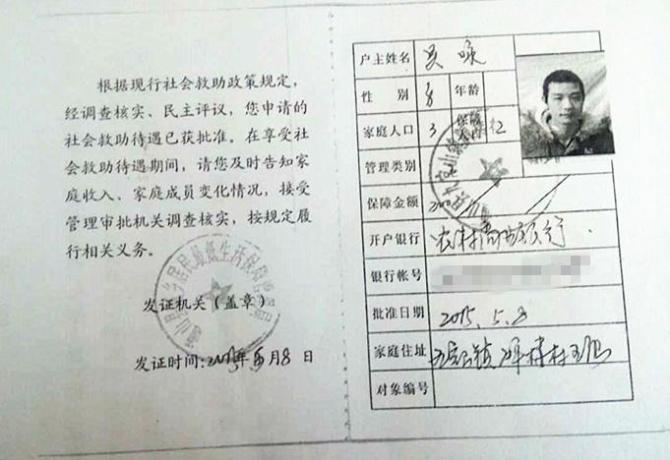 根据现行社会救助政策规定，
经调查核实、民主评议，您申请的
社会救助待遇已获批准。在享受社
会救助待遇期间，请您及时告知家
庭收入、家庭成员变化情况，接受
管理审批机关调查核实，按规定履
行相关义务。
发证机关（盖章）
发证时间：2015年5月8日
户主姓名 吴
性别 男 年龄
家庭人口 3 保障人口
管理类别
保障金额
开户银行 农村商业银行
银行帐号
批准日期 2015.5.8
家庭住址
对象编号